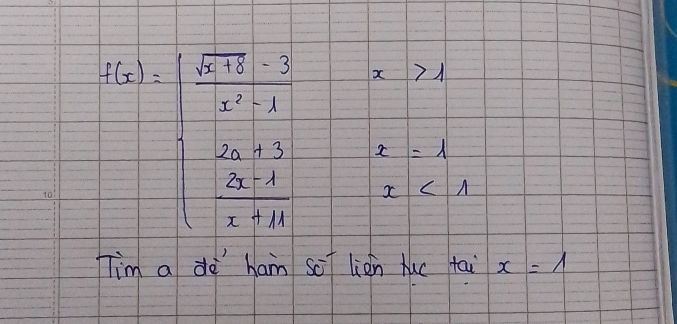 f(x) = { (√(x+8) - 3)/(x² - 1) x > 1
2a + 3 x = 1
(2x - 1)/(x + 11) x < 1
Tìm a để hàm số liên tục tại x = 1